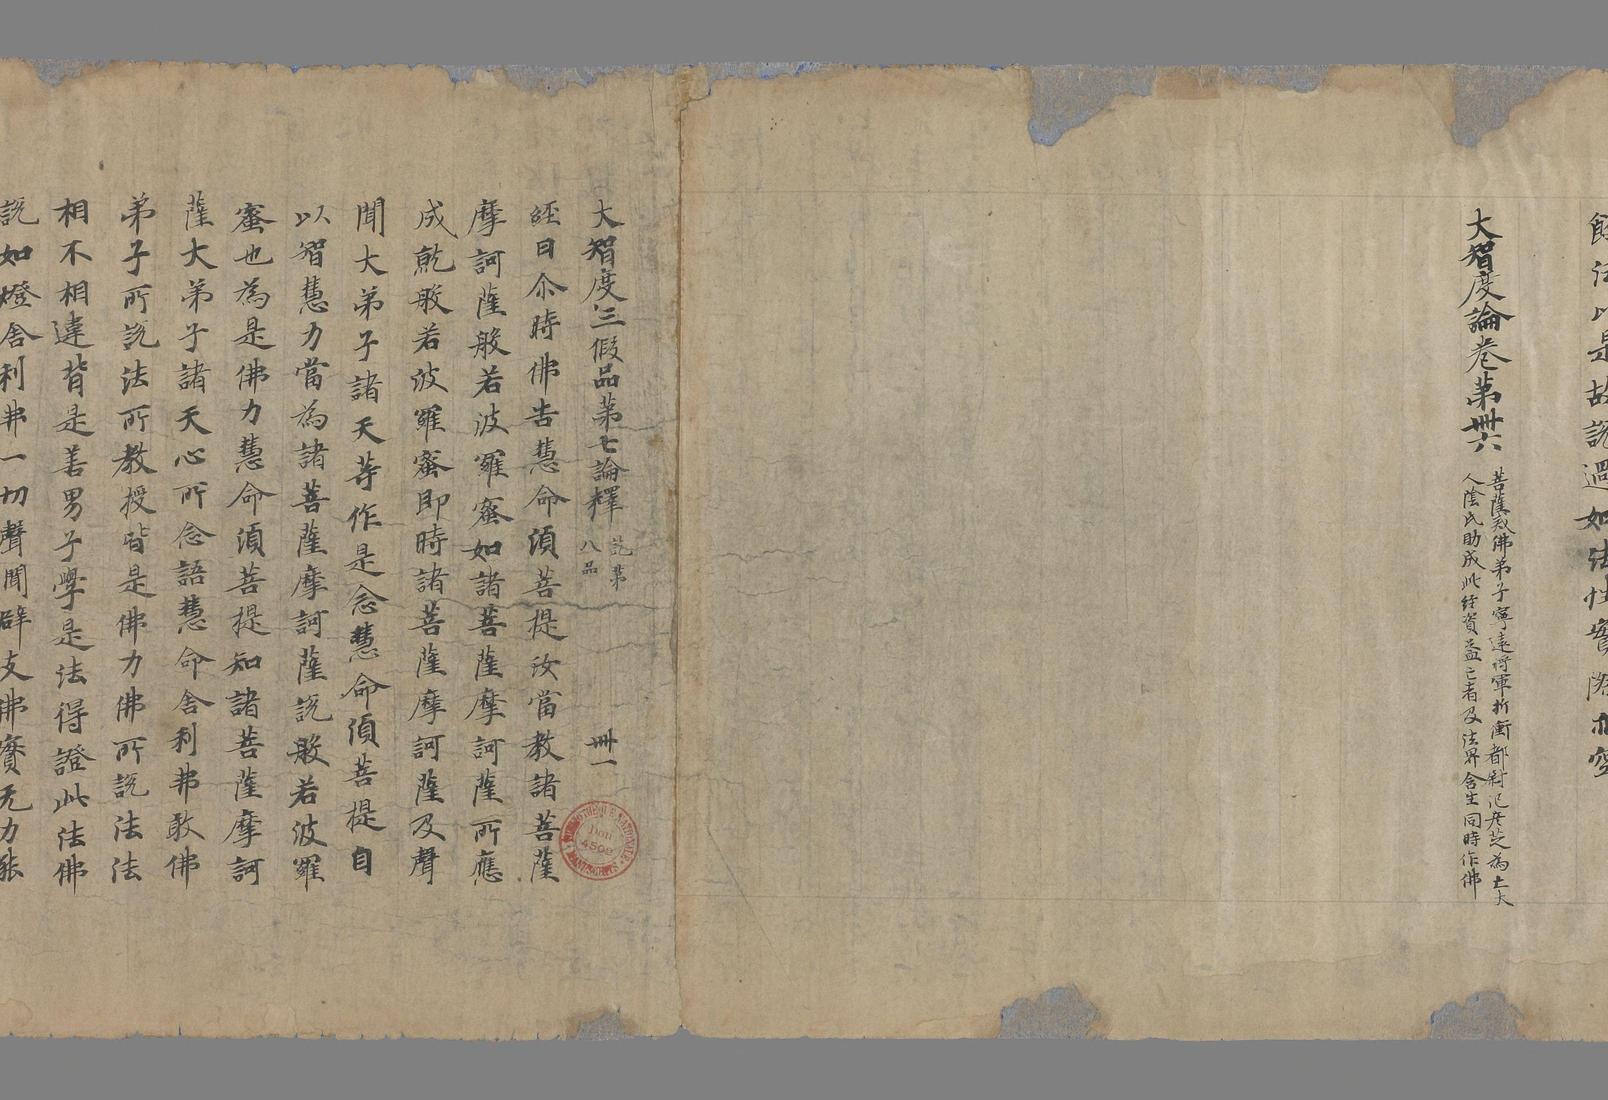 餘法以是故說過如法性實際亦空
大智度論卷第卌六
菩薩戒佛弟子寧遠將軍折衝都尉氾彦芝為亡大
人陰氏助成此經資益亡者及法界含生同時作佛
大智度三假品第七論釋
訖第
八品
卌一
經曰尒時佛告慧命須菩提汝當教諸菩薩
摩訶薩般若波羅蜜如諸菩薩摩訶薩所應
成就般若波羅蜜即時諸菩薩摩訶薩及聲
聞大弟子諸天等作是念慧命須菩提自
以智慧力當為諸菩薩摩訶薩說般若波羅
蜜也為是佛力慧命須菩提知諸菩薩摩訶
薩大弟子諸天心所念語慧命舍利弗敢佛
弟子所說法所教授皆是佛力佛所說法法
相不相違背是善男子學是法得證此法佛
說如燈舍利弗一切聲聞辟支佛實无力能
BIBLIOTHEQUE NATIONALE
Don
4502
MANUSCRITS